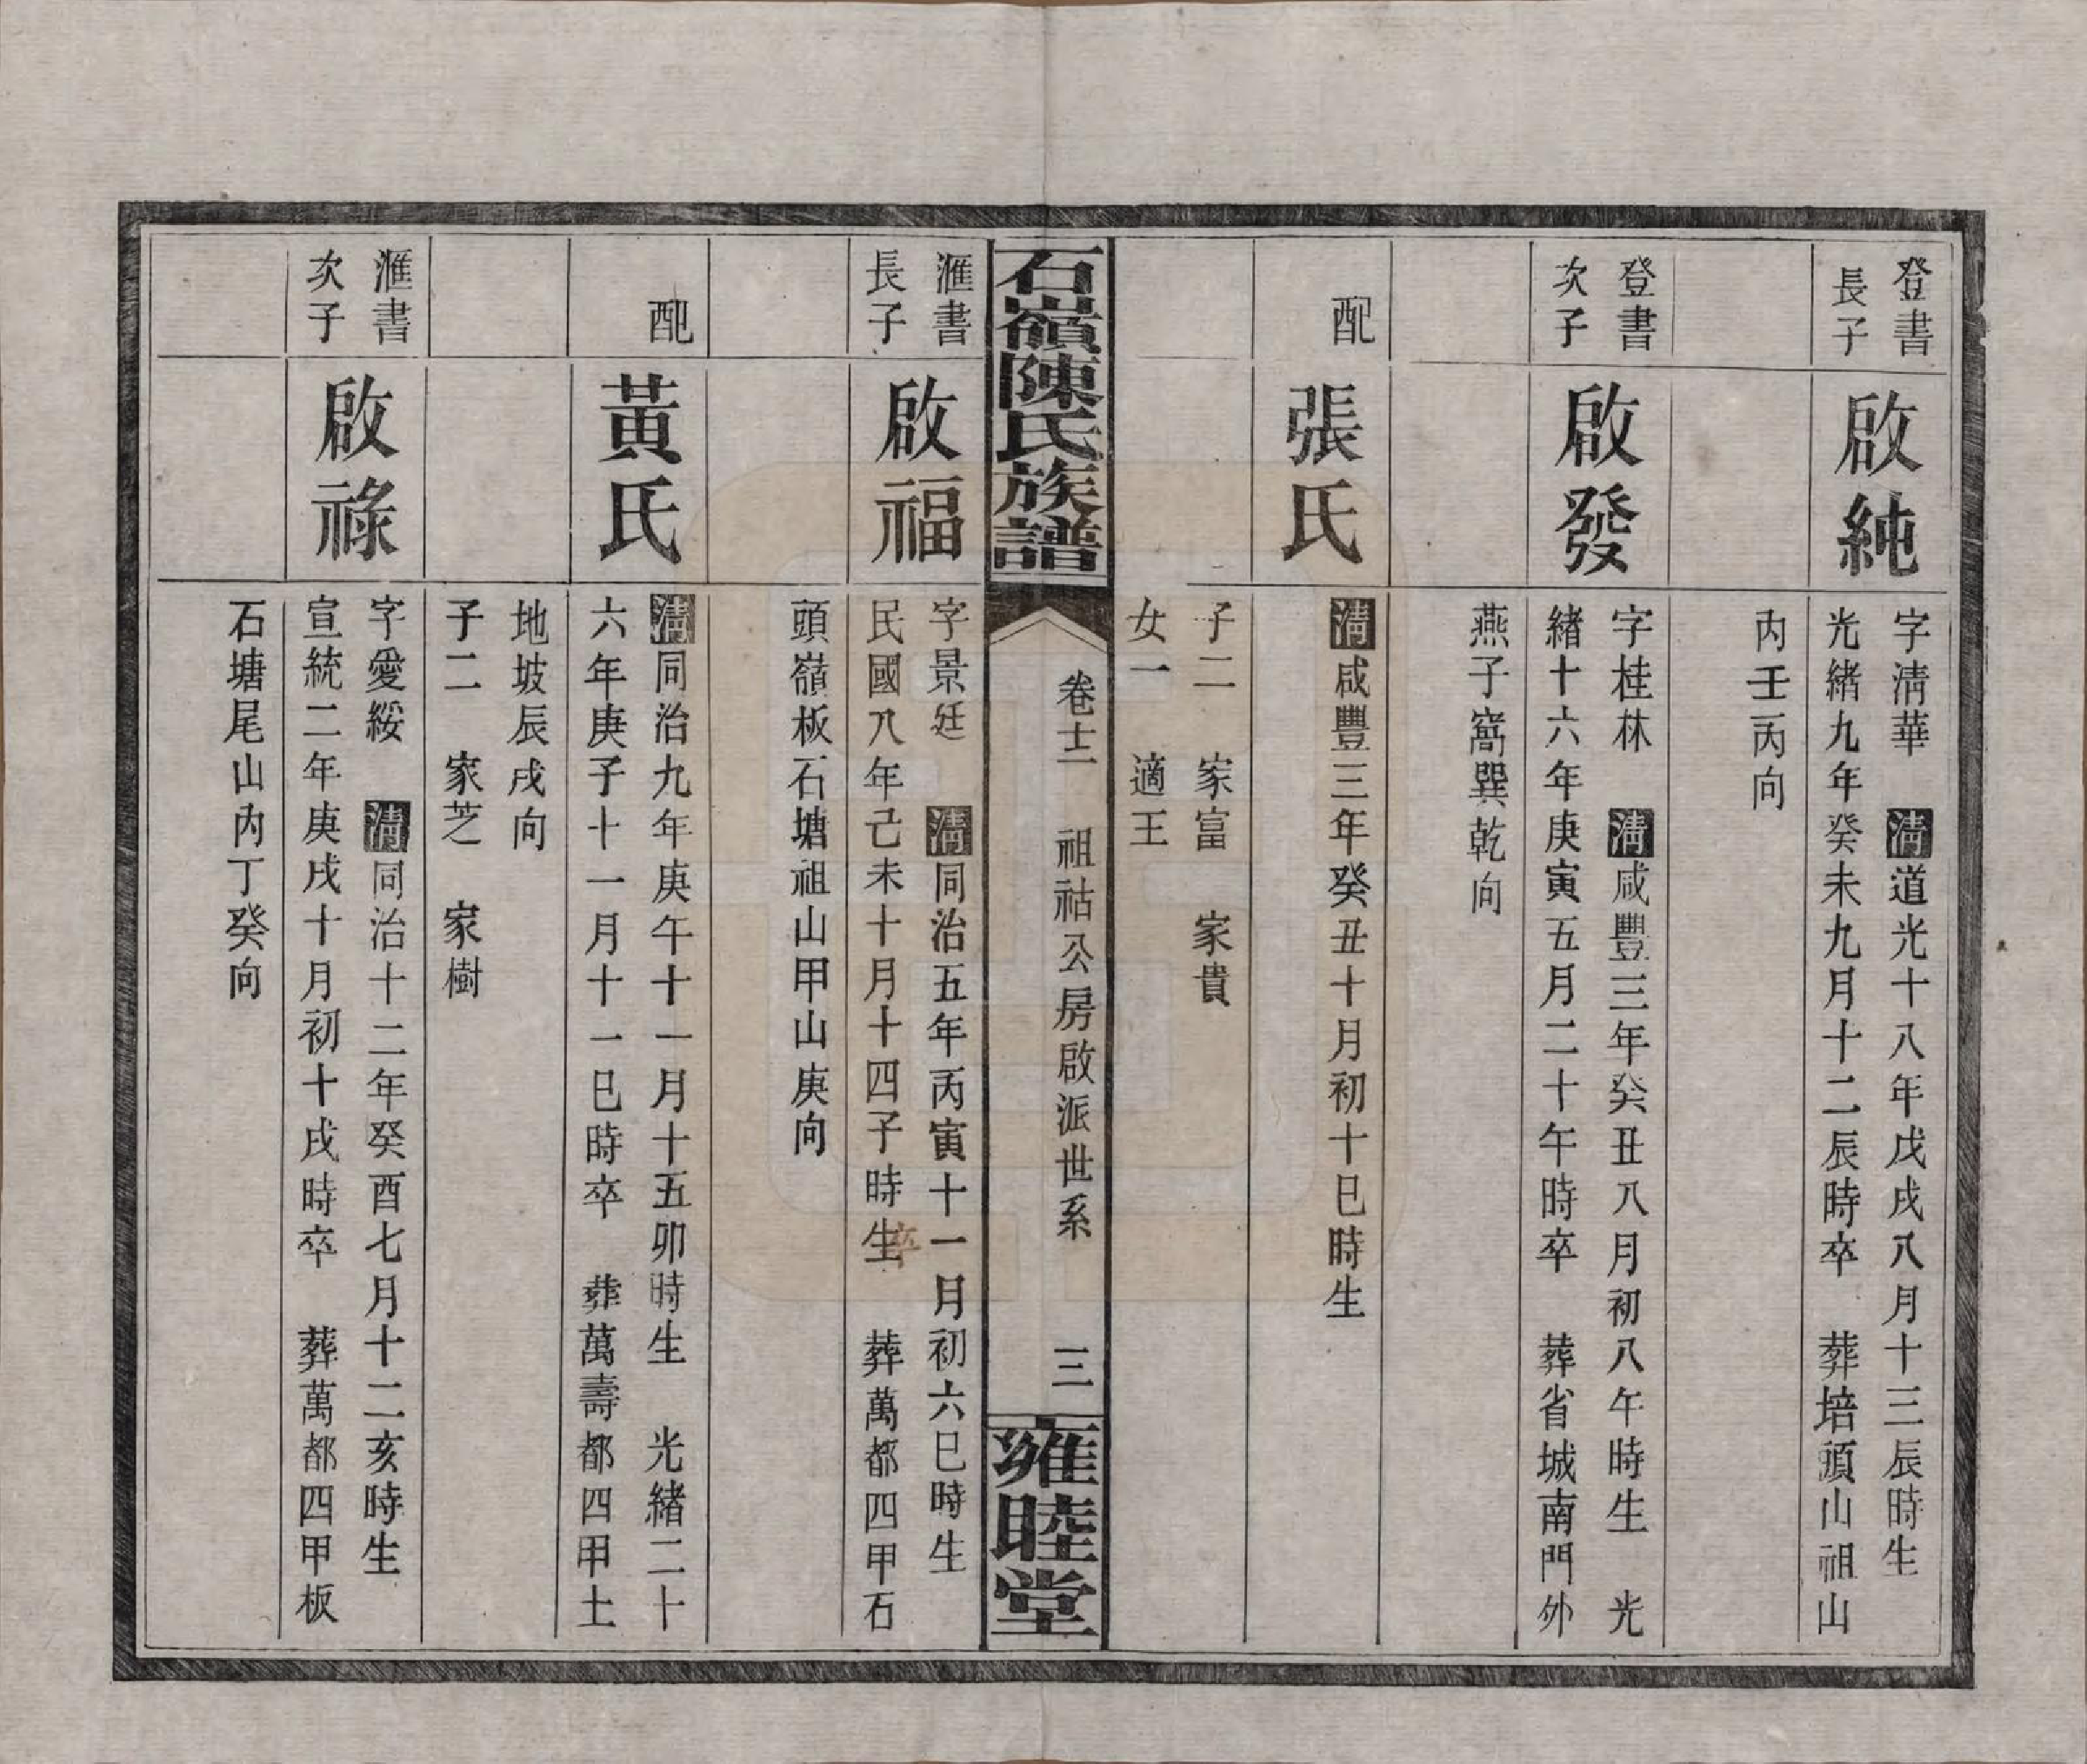 登書
長子
啟純
字淸華　淸道光十八年戊戌八月十三辰時生
光緒九年癸未九月十二辰時卒　葬培頭山祖山
內壬丙向
登書
次子
啟發
字桂林　淸咸豐三年癸丑八月初八午時生　光
緒十六年庚寅五月二十午時卒　葬省城南門外
燕子窩巽乾向
配
張氏
淸咸豐三年癸丑十月初十巳時生
子二　家富　家貴
女一　適王
石嶺陳氏族譜
卷十二　祖祜公房啟派世系　三
雍睦堂
滙書
長子
啟福
字景廷　淸同治五年丙寅十一月初六巳時生
民國八年己未十月十四子時生　葬萬都四甲石
卒
頭嶺板石塘祖山甲山庚向
配
黃氏
淸同治九年庚午十一月十五卯時生　光緒二十
六年庚子十一月十一巳時卒　葬萬壽都四甲土
地坡辰戌向
子二　家芝　家樹
滙書
次子
啟祿
字愛綏　淸同治十二年癸酉七月十二亥時生
宣統二年庚戌十月初十戌時卒　葬萬都四甲板
石塘尾山內丁癸向